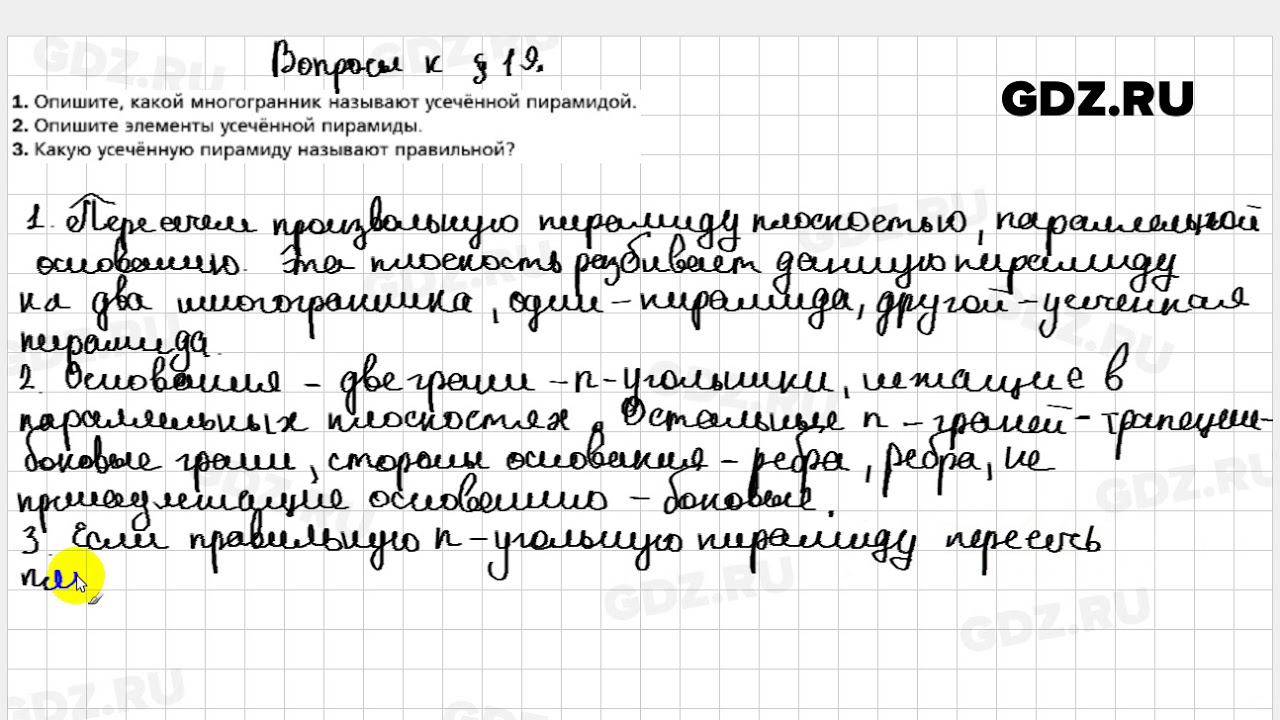 Вопросы к § 19.
GDZ.RU
1. Опишите, какой многогранник называют усечённой пирамидой.
2. Опишите элементы усечённой пирамиды.
3. Какую усечённую пирамиду называют правильной?
1. Пересечем произвольную пирамиду плоскостью, параллельной
основанию. Эта плоскость разбивает данную пирамиду
на два многогранника, один – пирамида, другой – усеченная
пирамида.
2. Основания – две грани – n-угольники, лежащие в
параллельных плоскостях. Остальные n – граней – трапеции –
боковые грани, стороны основания – ребра, ребра, не
принадлежащие основанию – боковые.
3. Если правильную n-угольную пирамиду пересечь